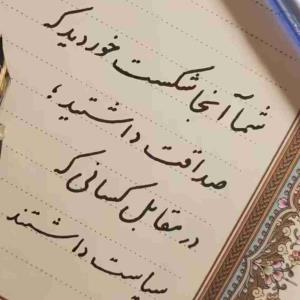 شما آنجا شکست خوردید که
صداقت داشتید؛
در مقابل کسانی که
سیاست داشتند